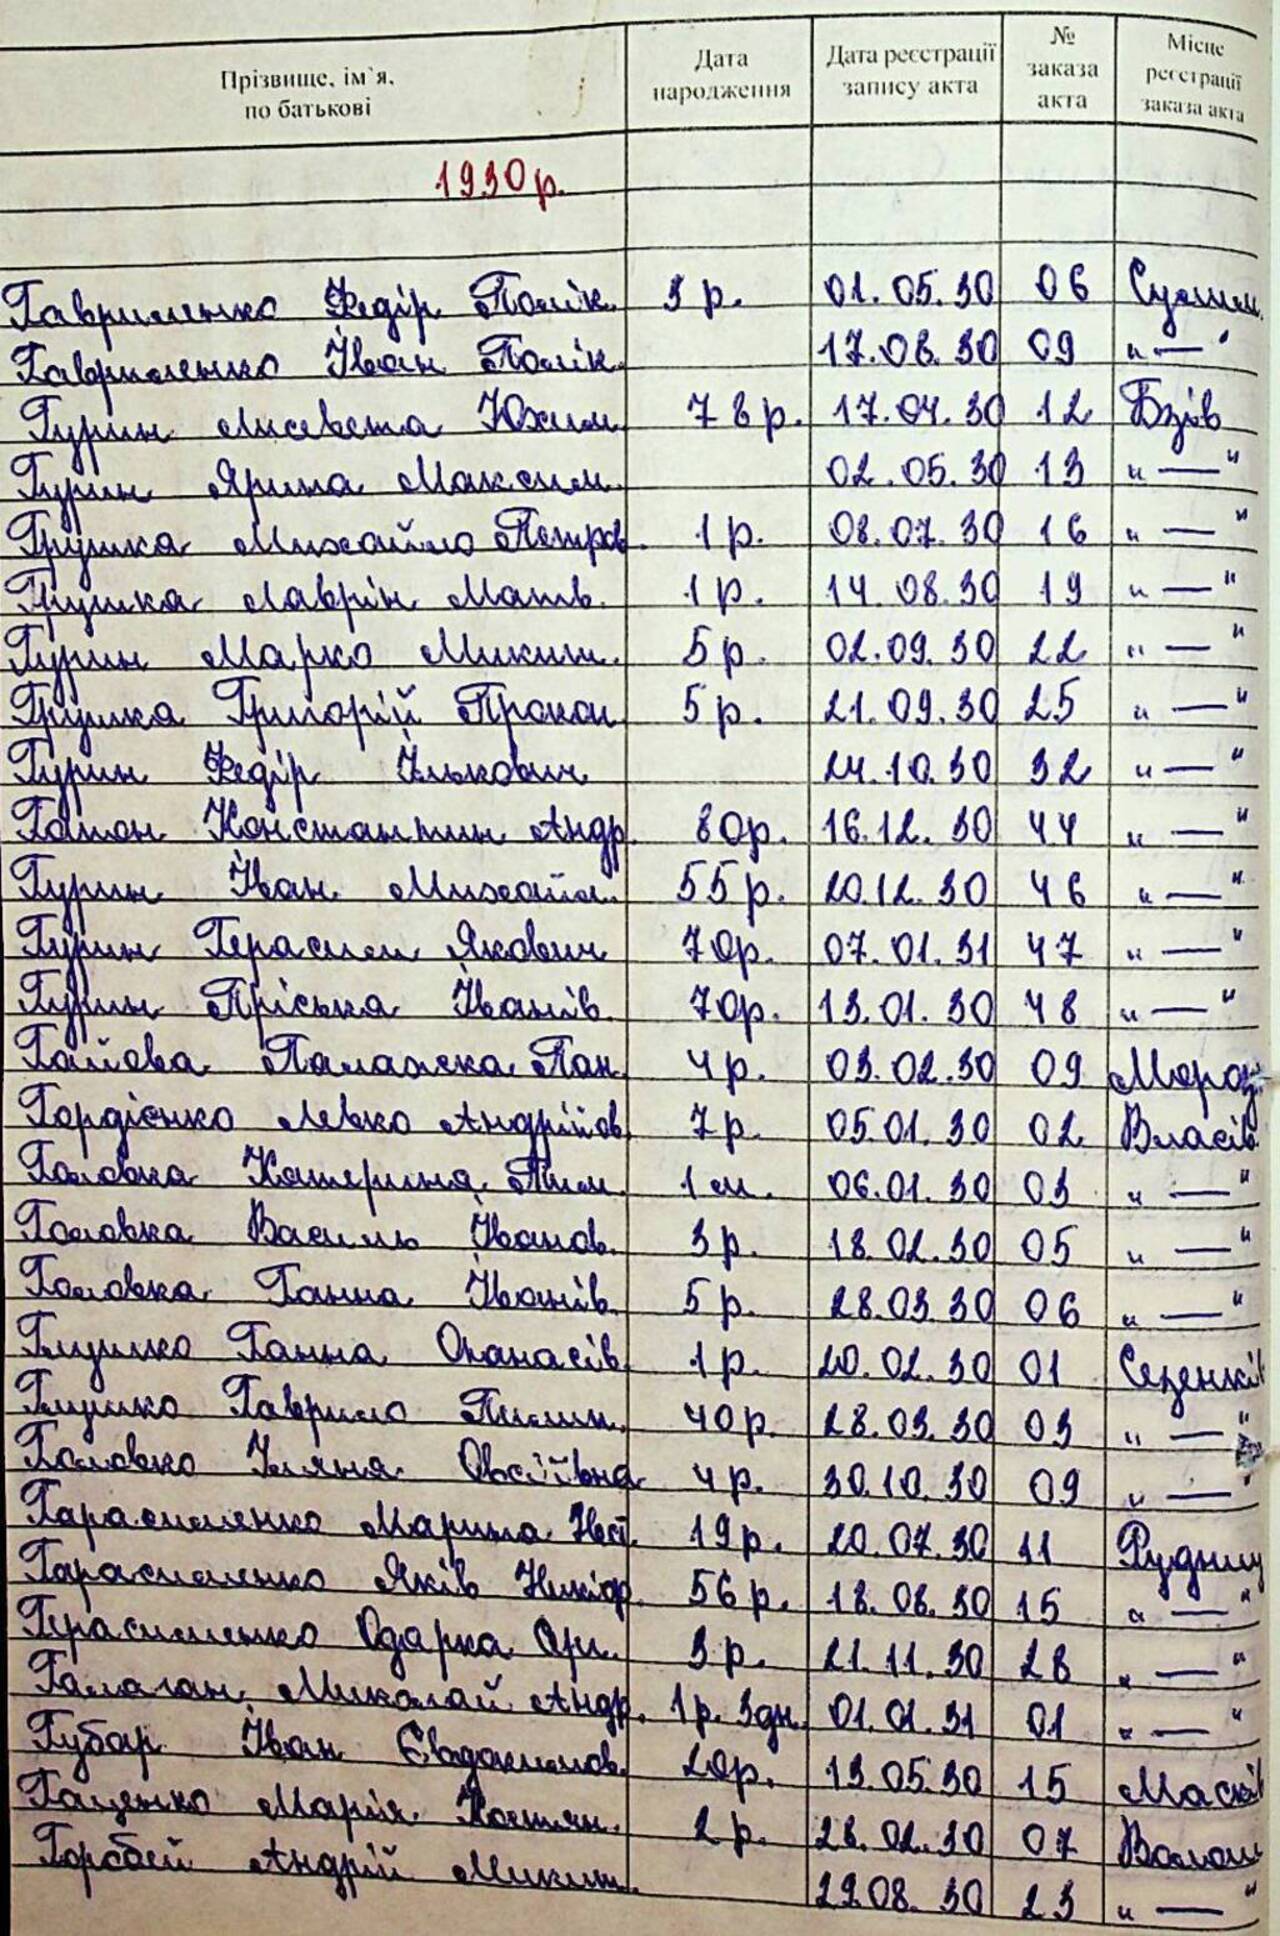 Прізвище, ім`я, по батькові Дата народження Дата реєстрації запису акта № заказа акта Місце реєстрації заказа акта
1930р.
Гавриленко Федір Полік. 3 р. 01.05.30 06
Гавриленко Іван Полік. 17.08.30 09 "—"
Гурин Лисавета Юхим. 78р. 17.04.30 12 Бзів
Гурин Ярина Максим. 02.05.30 13 "—"
Грушка Михайло Петров. 1р. 08.07.30 16 "—"
Грушка Лаврін Матв. 1р. 14.08.30 19 "—"
Гурин Марко Микит. 5р. 02.09.30 22 "—"
Грушка Григорій Прокоп. 5р. 21.09.30 25 "—"
Гурин Федір Ількович 24.10.30 32 "—"
Гапон Констянтин Андр. 80р. 16.12.30 44 "—"
Гурин Іван Михайл. 55р. 20.12.30 46 "—"
Гурин Герасим Якович 70р. 07.01.31 47 "—"
Гурин Пріська Іванів. 70р. 13.01.30 48 "—"
Гайова Палажка Пан. 4р. 03.02.30 09 Мороз
Гордієнко Левко Андрійов. 7р. 05.01.30 02 Власів
Головка Катерина Пил. 1м. 06.01.30 03 "—"
Головка Василь Іванов. 3р. 18.02.30 05 "—"
Головка Ганна Іванів. 5р. 28.03.30 06 "—"
Глушко Ганна Опанасів. 1р. 20.02.30 01 Сезенків
Глушко Гаврило Пилип. 40р. 28.03.30 03 "—"
Головко Уляна Овсіївна 4р. 30.10.30 09 "—"
Гарасименко Марина Нест. 19р. 20.07.30 11 Рудниц
Гарасименко Яків Никіф. 56р. 18.08.30 15 "—"
Герасименко Одарка 3р. 21.11.30 28 "—"
Галаган Миколай Андр. 1р. 3дн. 01.01.31 01 "—"
Губар Іван Євдокимов. 20р. 13.05.30 15 Масків
Гаценко Марія Костян. 2р. 28.02.30 07 Волош
Горбей Андрій Микит. 22.08.30 23 "—"